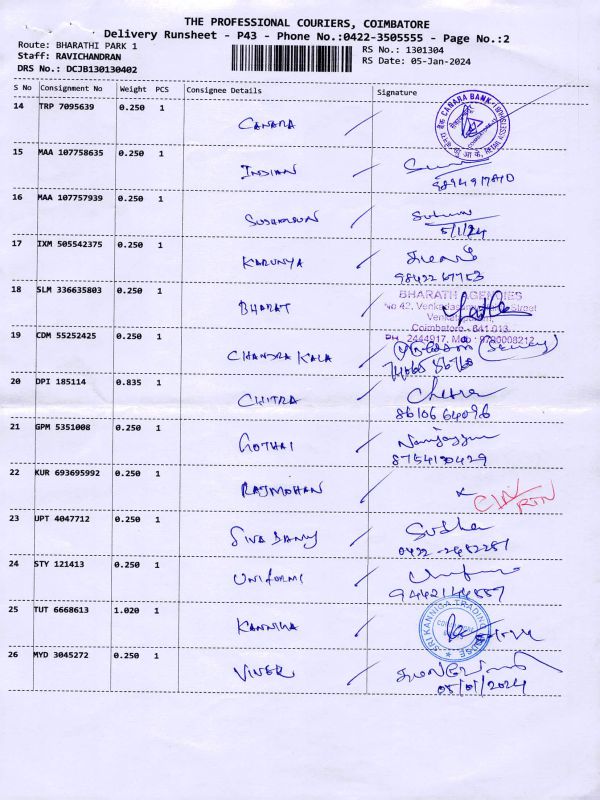 THE PROFESSIONAL COURIERS, COIMBATORE
Delivery Runsheet - P43 - Phone No.:0422-3505555 - Page No.:2
Route: BHARATHI PARK 1
RS No.: 1301304
Staff: RAVICHANDRAN
RS Date: 05-Jan-2024
DRS No.: DCJB130130402
S No Consignment No Weight PCS Consignee Details Signature
14 TRP 7095639 0.250 1
CANARA BANK
CANARA
15 MAA 107758635 0.250 1
INDIAN
16 MAA 107757939 0.250 1
5/1/24
17 IXM 505542375 0.250 1
KARUNYA
18 SLM 336635803 0.250 1
BHARATH AGENCIES
BHARAT
Coimbatore - 641 013.
19 CDM 55252425 0.250 1
PH: 2444917, Mob: 9790008212
CHANDRA KALA
20 DPI 185114 0.835 1
CHITRA
8610664096
21 GPM 5351008 0.250 1
GOTHAI
8754190429
22 KUR 693695992 0.250 1
RAJMOHAN
RTN
23 UPT 4047712 0.250 1
SIVA BANU
Sudha
24 STY 121413 0.250 1
UNIFORMI
25 TUT 6668613 1.020 1
SRI KANNIGA TRADING HOUSE
KANNIKA
26 MYD 3045272 0.250 1
VIVEK
05/01/2024